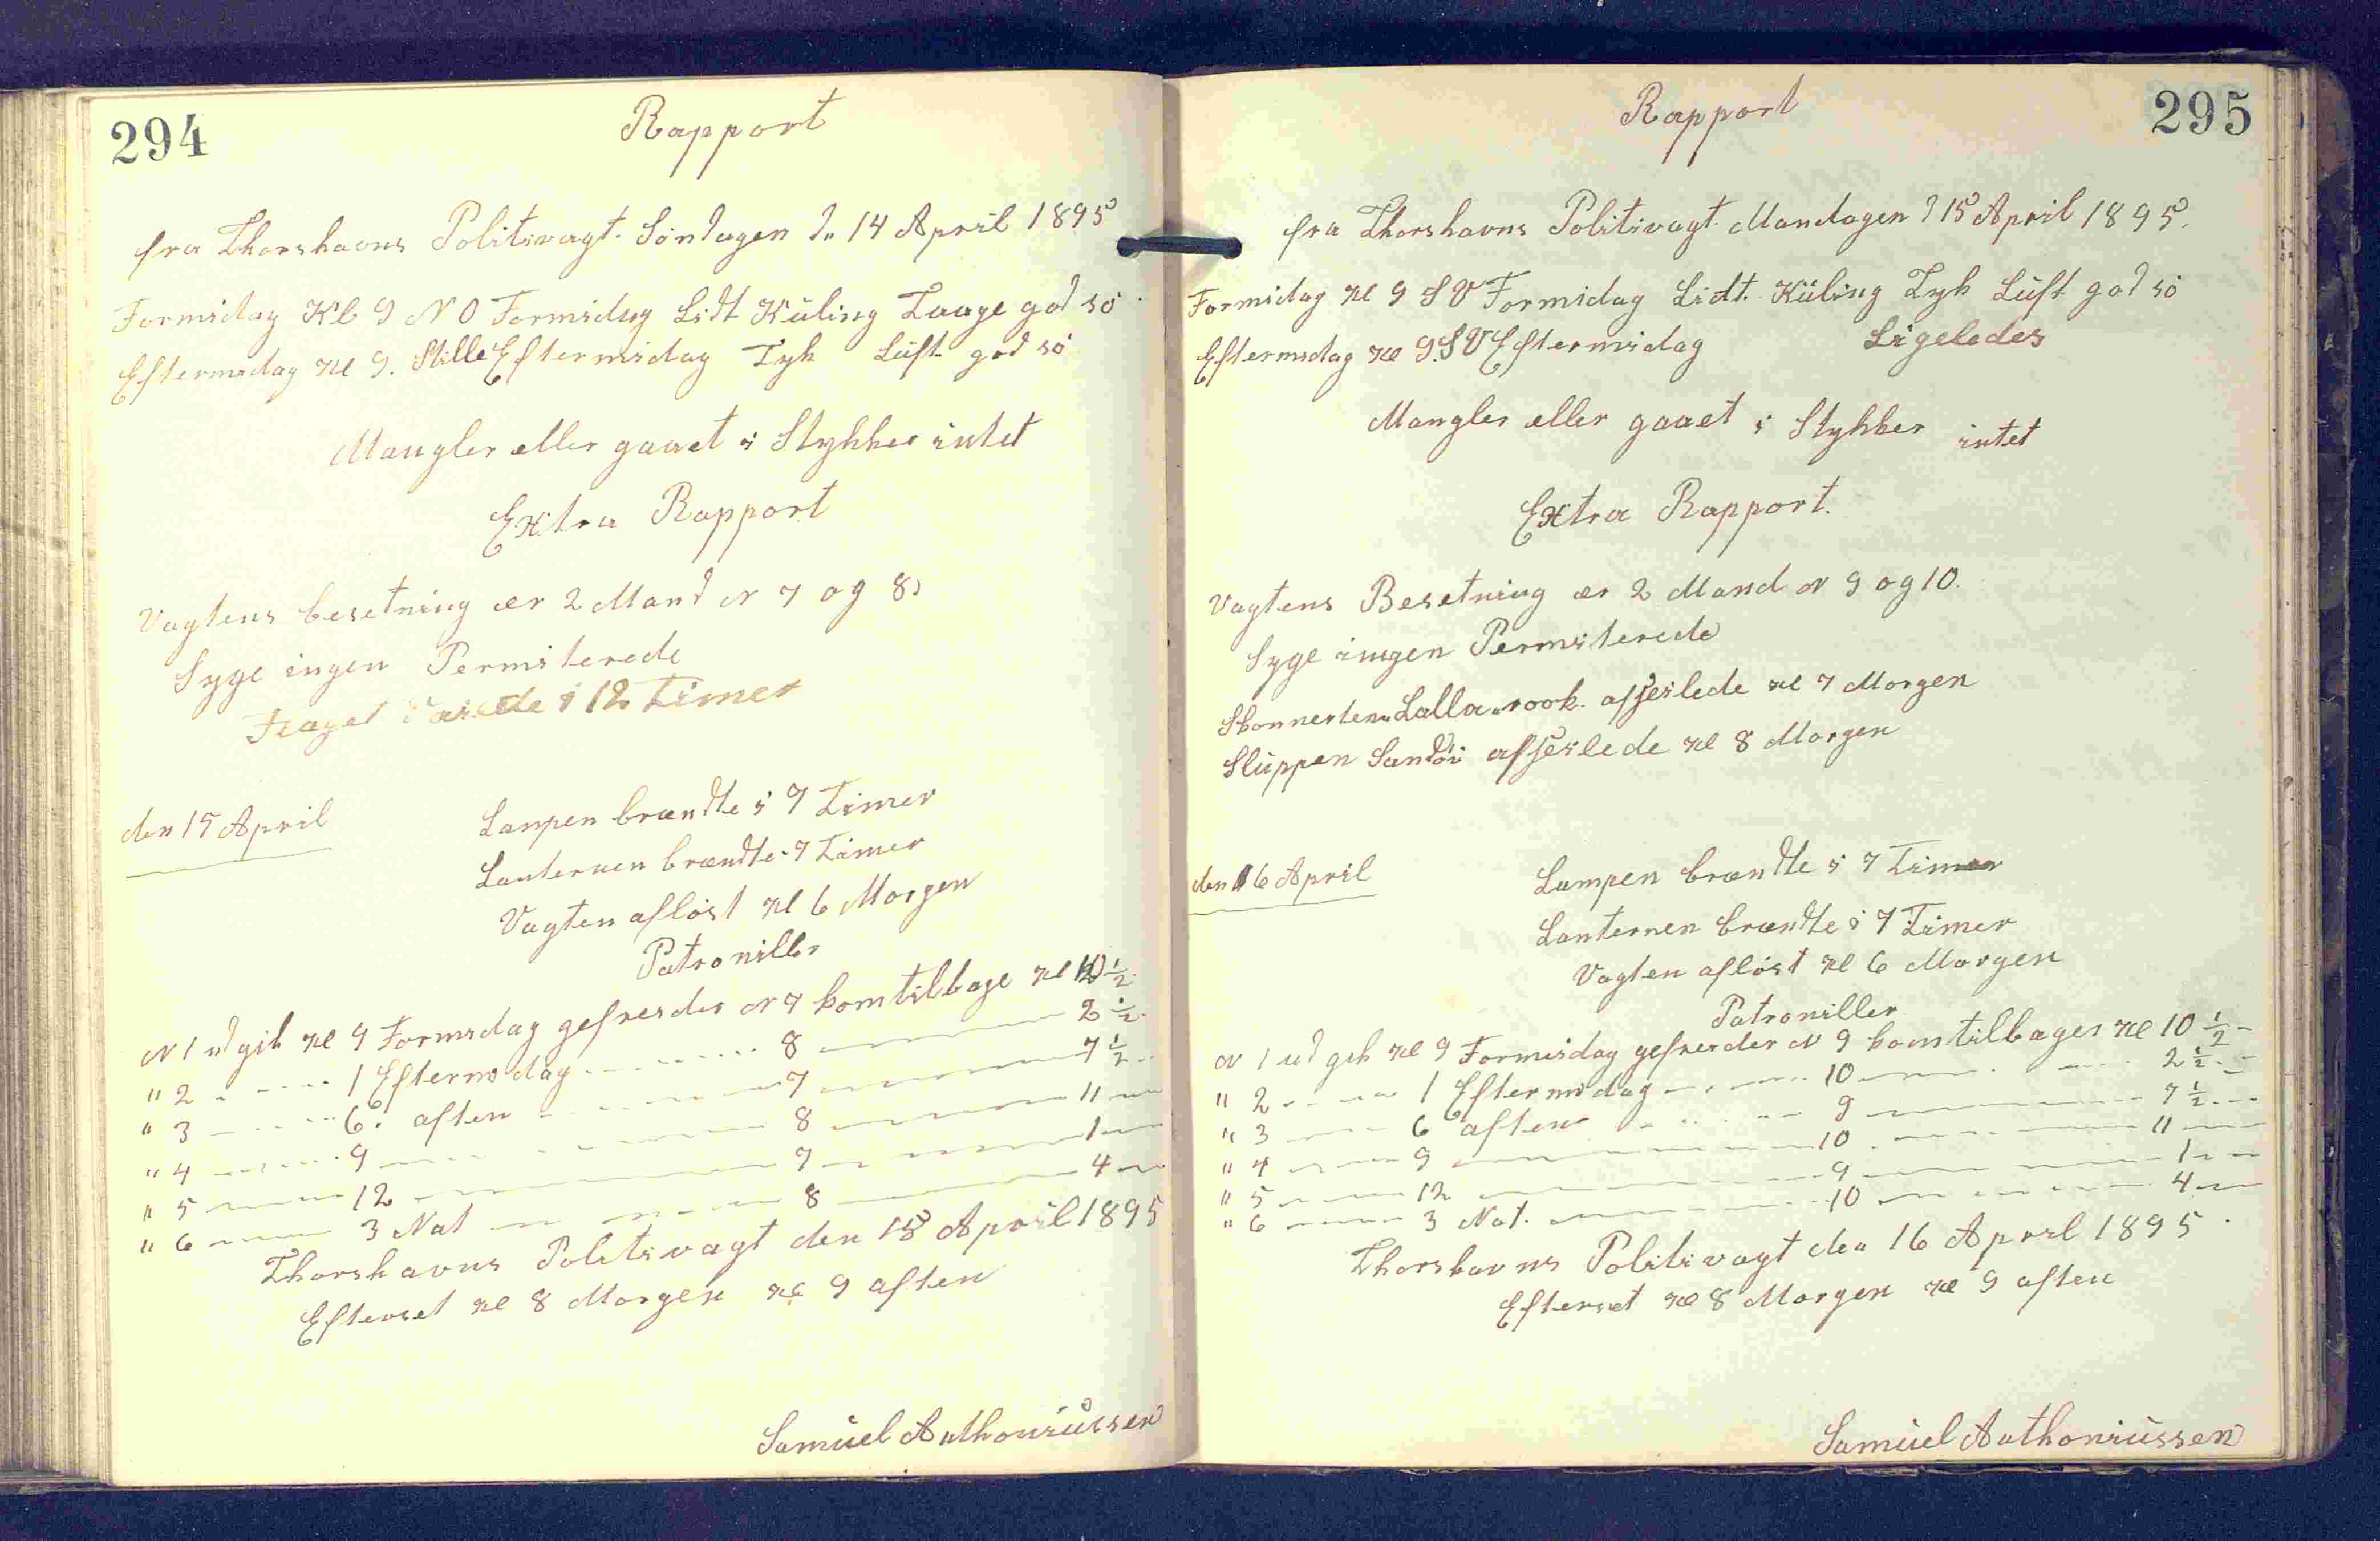 294
Rapport
fra Thorshavns Politivagt. Söndagen d. 14 April 1895
Formidag Kl 9 N O Formidag Lidt Küling Taage god sö
Eftermidag Kl 9. Stille Eftermidag Tyk Lüft god sö
Mangler eller gaaet i Stykker intet
Extra Rapport
Vagtens besetning er 2 Mand N 7 og 8
Syge ingen Permiterede
Flaget i 12 Timer
den 15 April
Lampen brændte i 7 Timer
Lanternen brændte 7 Timer
Vagten aflöst Kl 6 Morgen
Patroniller
N 1 udgik Kl 9 Formidag gefreider N 7 kom tilbage Kl 10 ½
" 2 1 Eftermidag 8 2 ½
" 3 6 aften 7 7 ½
" 4 9 8 11
" 5 12 7 1
" 6 3 Nat 8 4
Thorshavns Politivagt den 15 April 1895
Efterset Kl 8 Morgen Kl 9 aften
Samüel Anthoniüssen
295
Rapport
fra Thorshavns Politivagt. Mandagen d 15 April 1895.
Formidag Kl 9 S V Formidag Lidt. Küling Tyk Lüft god sö
Eftermidag Kl 9. S V Eftermidag Ligeledes
Mangler eller gaaet i Stykker intet
Extra Rapport.
Vagtens Besetning er 2 Mand N 9 og 10.
Syge ingen Permiterede
Skonnerten "Lalla rook. afseilede Kl 7 Morgen
Slüppen Sandöi afseilede Kl 8 Morgen
den 16 April
Lampen brændte i 7 Timer
Lanternen brændte i 7 Timer
Vagten aflöst Kl 6 Morgen
Patroniller
N 1 udgik Kl 9 Formidag gefreider N 9 kom tilbages Kl 10 ½
" 2 1 Eftermidag 10 2 ½
" 3 6 aften 9 7 ½
" 4 9 10 11
" 5 12 9 1
" 6 3 Nat. 10 4
Thorshavns Politivagt den 16 April 1895.
Efterset Kl 8 Morgen Kl 9 aften
Samüel Anthoniüssen